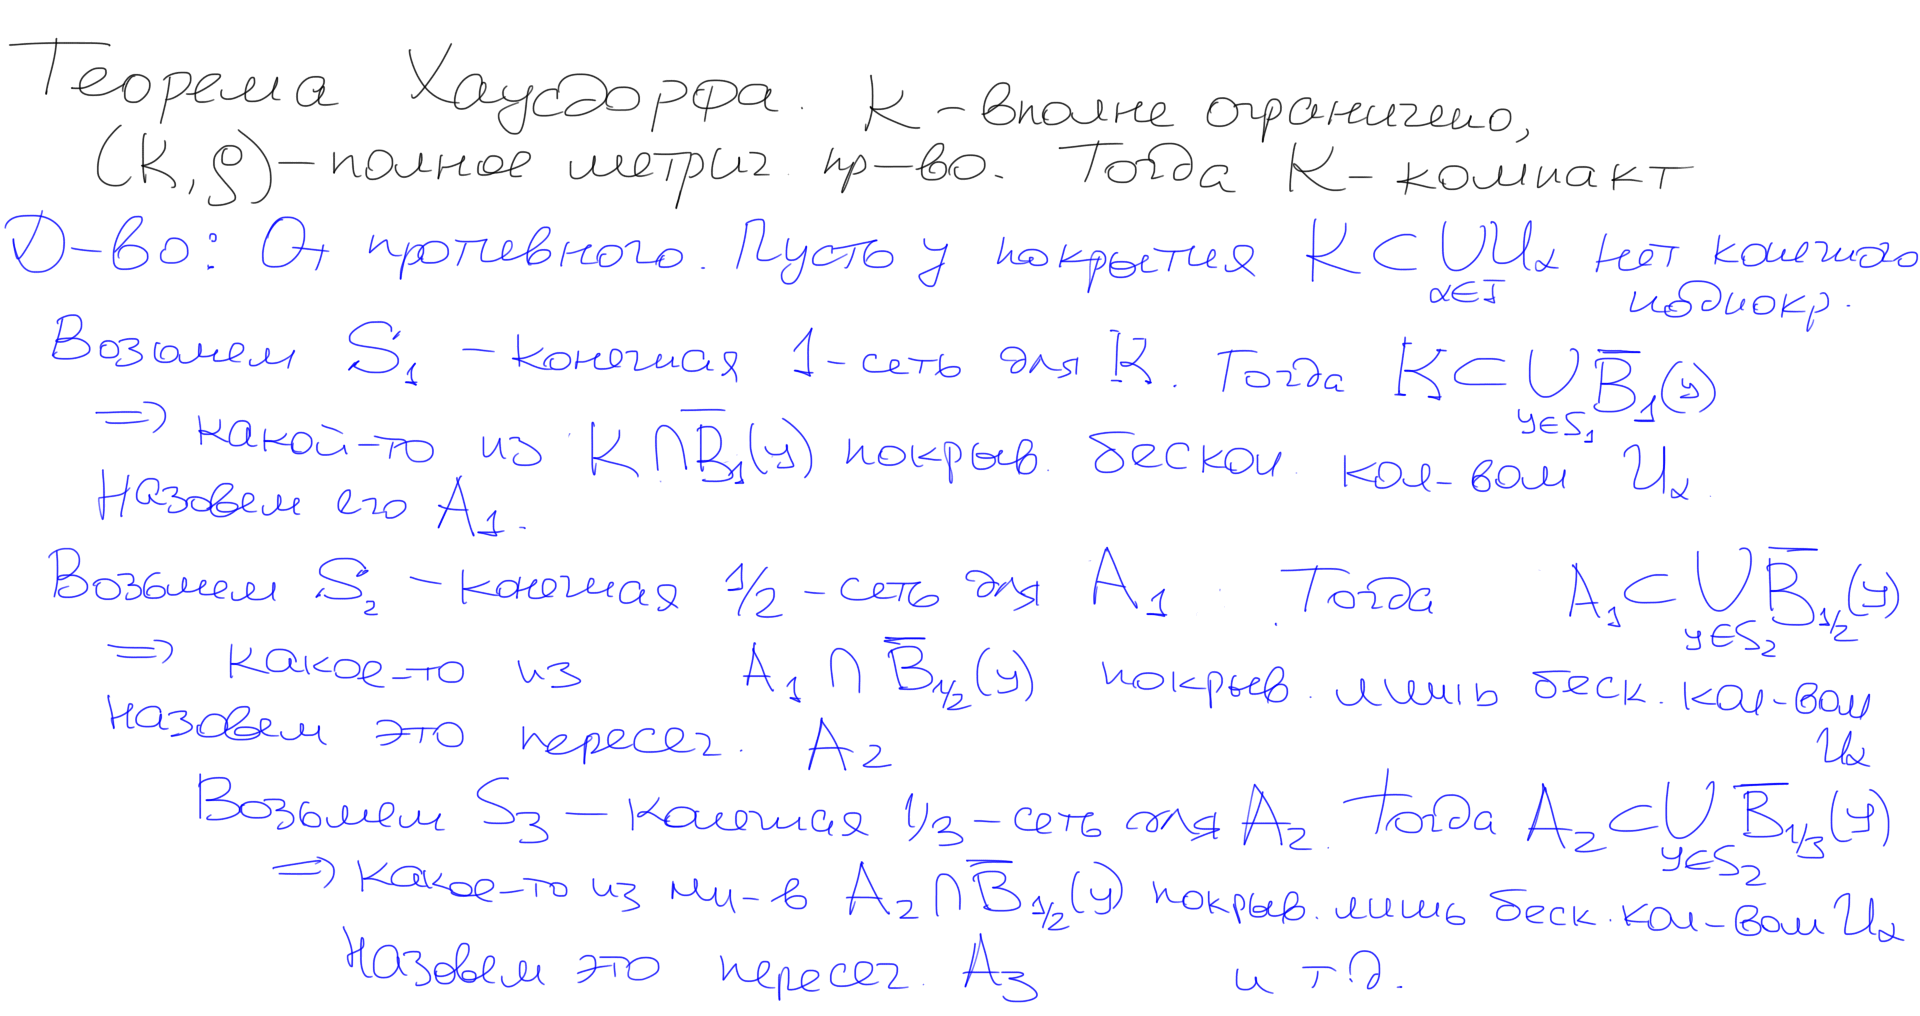 Теорема Хаусдорфа. K – вполне ограничено,
(K, ρ) – полное метрич. пр-во. Тогда K – компакт
Д-во: От противного. Пусть у покрытия K ⊂ ∪_{α∈I} U_α нет конечного
подпокр.
Возьмем S₁ – конечная 1-сеть для K. Тогда K ⊂ ∪_{y∈S₁} B̅₁(y)
⇒ какой-то из K ∩ B̅₁(y) покрыв. бескон. кол-вом U_α.
Назовем его A₁.
Возьмем S₂ – конечная 1/2-сеть для A₁. Тогда A₁ ⊂ ∪_{y∈S₂} B̅_{1/2}(y)
⇒ какое-то из A₁ ∩ B̅_{1/2}(y) покрыв. лишь беск. кол-вом
U_α
Назовем это пересеч. A₂
Возьмем S₃ – конечная 1/3-сеть для A₂. Тогда A₂ ⊂ ∪_{y∈S₂} B̅_{1/3}(y)
⇒ какое-то из мн-в A₂ ∩ B̅_{1/2}(y) покрыв. лишь беск. кол-вом U_α
Назовем это пересеч. A₃ и т.д.